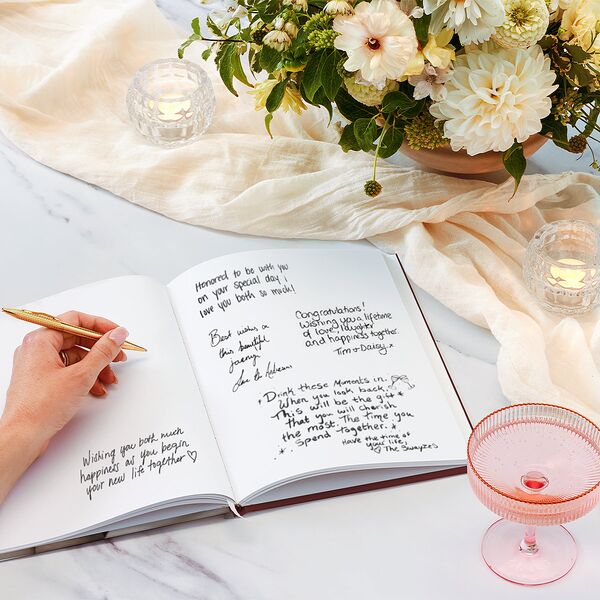 Wishing you both much
happiness as you begin
your new life together ♡
Honored to be with you
on your special day, I
love you both so much!
Best wishes on
this beautiful
Congratulations!
Wishing you a lifetime
of love, laughter
and happiness together.
Tim + Daisy x
Drink these Moments in.
When you look back,
This will be the gift
that you will cherish
the most. The time you
Spend together.
Have the time of
your life,
♡ The Swayzes